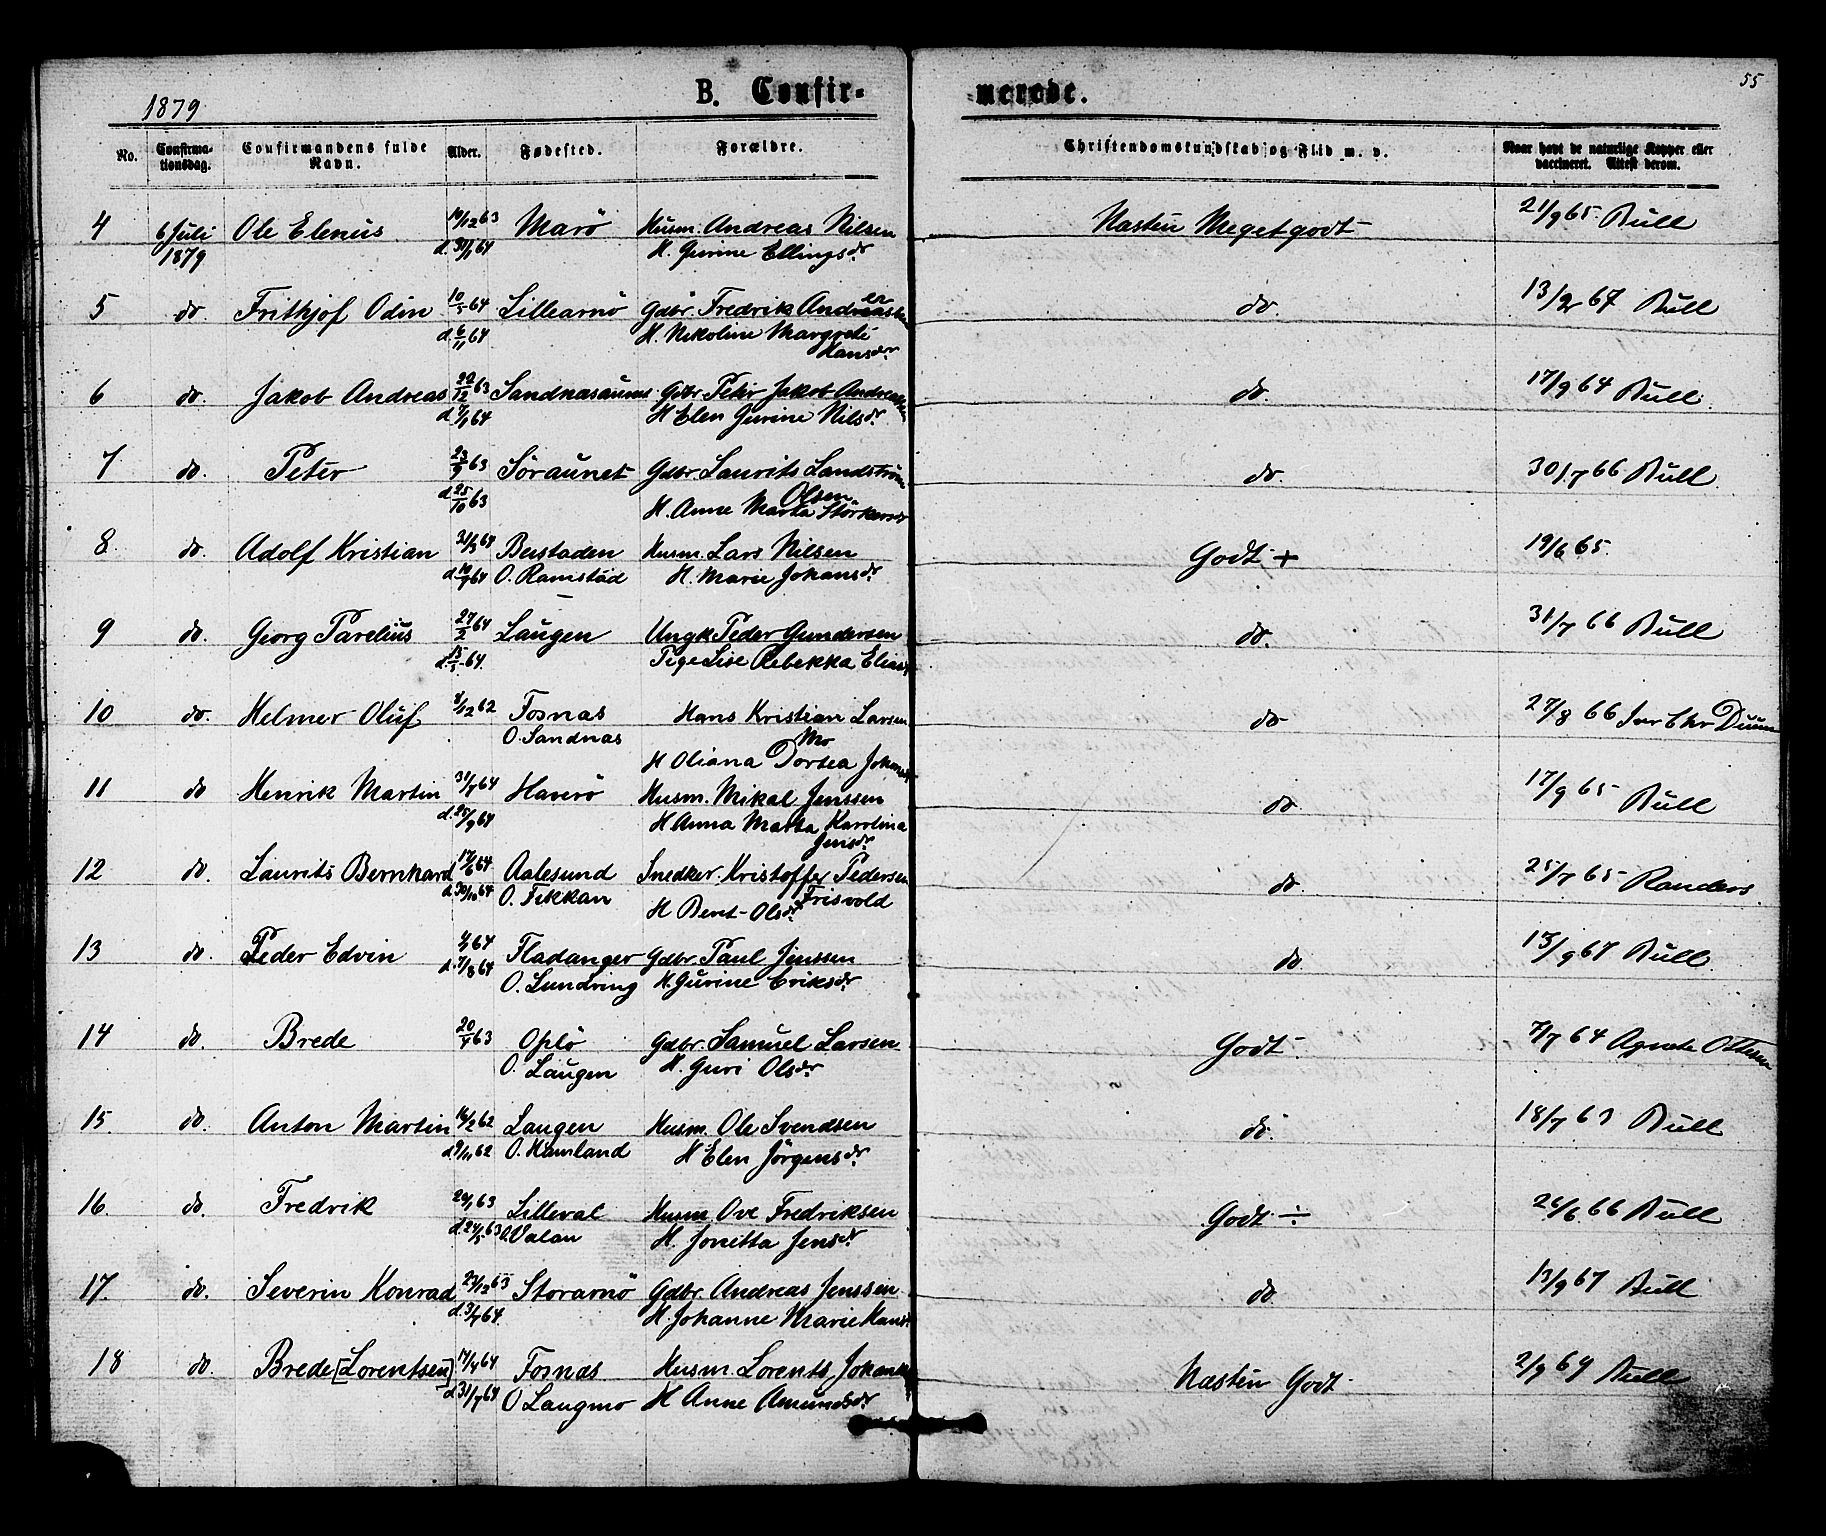 55
1879 B. Confir- merede.
No. Confirma- tionsdag. Confirmandens fulde Navn. Alder. Fødested. Forældre. Christendomskundskab og Flid m. v. Naar havt de naturlige Kopper eller vaccineret. Attest derom.
4 6 Juli Ole Elenius 19/12 63 Marö Husm. Andreas Nilsen Næsten Meget godt 21/9 65 Bull
1879 d. 31/1 64 H. Gurine Ellingsdr
5 do Frithjof Odin 10/5 64 Lillearnö Gdbr. Fredrik Andreassen do. 13/2 67 Bull
d. 6/11 64 H. Nikoline Margrete
Hansdr
6 do. Jakob Andreas 22/12 63 Sandnæsaunet Gdbr. Peter Jakob Andreassen do. 17/9 64 Bull.
d. 7/1 64 H Elen Gurine Nilsdr.
7 do. Peter 23/9 63 Söraunet Gdbr. Laurits Landström do. 30/7 66 Bull
d. 25/10 63 Olsen
H. Anne Marta Störkersdr
8. do. Adolf Kristian 31/3 64 Bustaden Husm. Lars Nilsen Godt + 19/6 65.
64 O. Ramstad H. Marie Johansdr.
9 do. Georg Parelius 27/2 64 Laugen Ungk. Peder Gundersen do. 31/7 66 Bull
d. 15/5 64. Pige Lise Rebekka Eliasdr
10 do. Helmer Oluf 8/12 62 Fosnæs Hans Kristian Larsen do 27/8 66 Chr Duun
O. Sandnæs Mo
H Oliana Dortea Johansdr
11 do Henrik Martin 31/7 64 Haverö Husm. Mikal Jenssen do 17/9 65 Bull
d. 25/9 64 H Anna Marta Karolina
Jensdr.
12 do. Laurits Bernhard 17/6 64 Aalesund Snedker Kristoffer Pedersen do 25/7 65 Randers
d. 30/10 64 O. Fikkan Frisvold
H Berit Olsdr
13 do. Peder Edvin 4/1 64 Fladanger Gdbr. Paul Jenssen do 13/9 67 Bull.
d. 7/8 64 O. Lundring H. Gurine Eriksdr.
14 do. Brede 20/4 63 Oplö Gdbr. Samuel Larsen Godt 7/7 64 Agnete Ottesen
O. Laugen H. Guri Olsdr.
15. do. Anton Martin 16/2 62 Laugen Husm. Ole Svendsen do. 18/7 63 Bull
d. 9/11 62 O. Hamland H Elen Jörgensdr.
16. do. Fredrik 24/1 63 Lilleval Husm. Ove Fredriksen Godt ÷ 26/6 66 Bull
d. 24/5 63 O. Valan H. Jonetta Jensdr
17. do. Severin Konrad 23/12 63 Storarnö Gdbr. Andreas Jenssen do 13/9 67 Bull
d. 3/4 64. H. Johanne Marie Hansdr
18 do. Brede [Lorentsen] 17/4 64 Fosnæs Husm. Lorents Johansen Næsten Godt 2/9 69 Bull
d. 31/7 64 O Laugmo H Anne Amundsdr